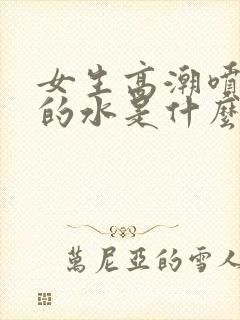 女生高潮噴
的水是什麼
萬尼亞的雪人